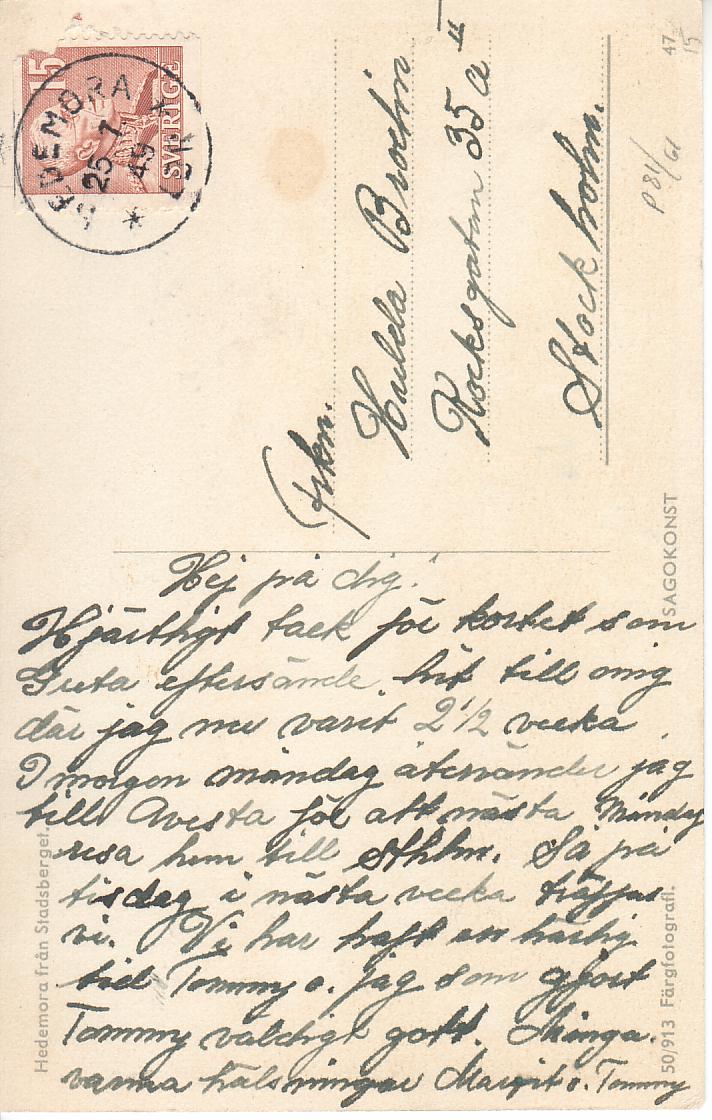 15
SVERIGE
HEDEMORA
25 1
49
47
15
P81/61
Frkn.
Hulda Broelin
Rocksgatan 35 a II
Stockholm.
Hej på dig!
Hjärtligt tack för kortet som
Greta eftersände hit till mig
där jag nu varit 2 1/2 vecka.
I morgon måndag återvänder jag
till Avesta för att nästa Måndag
resa hem till Sthlm. Så på
tisdag i nästa vecka träffas
vi. Vi har haft en härlig
tid Tommy o. jag som gjort
Tommy väldigt gott. Många.
varma hälsningar Margit o. Tommy
Hedemora från Stadsberget.
50/913 Färgfotografi.
SAGOKONST